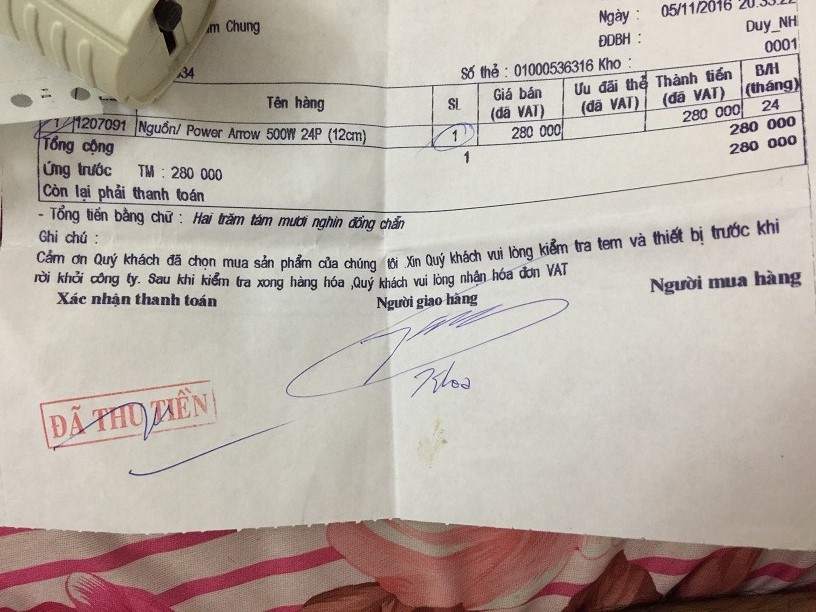 m Chung
Ngày : 05/11/2016 20:33:22
ĐDBH : Duy_NH
0001
34
Số thẻ : 01000536316 Kho :
Tên hàng SL Giá bán (đã VAT) Ưu đãi thẻ (đã VAT) Thành tiền (đã VAT) B/H (tháng)
1 1207091 Nguồn/ Power Arrow 500W 24P (12cm) 1 280 000 280 000 24
Tổng cộng 1 280 000
Ứng trước TM : 280 000 280 000
Còn lại phải thanh toán
- Tổng tiền bằng chữ : Hai trăm tám mươi nghìn đồng chẵn
Ghi chú :
Cảm ơn Quý khách đã chọn mua sản phẩm của chúng tôi .Xin Quý khách vui lòng kiểm tra tem và thiết bị trước khi
rời khỏi công ty. Sau khi kiểm tra xong hàng hóa ,Quý khách vui lòng nhận hóa đơn VAT
Xác nhận thanh toán Người giao hàng Người mua hàng
Khoa
ĐÃ THU TIỀN